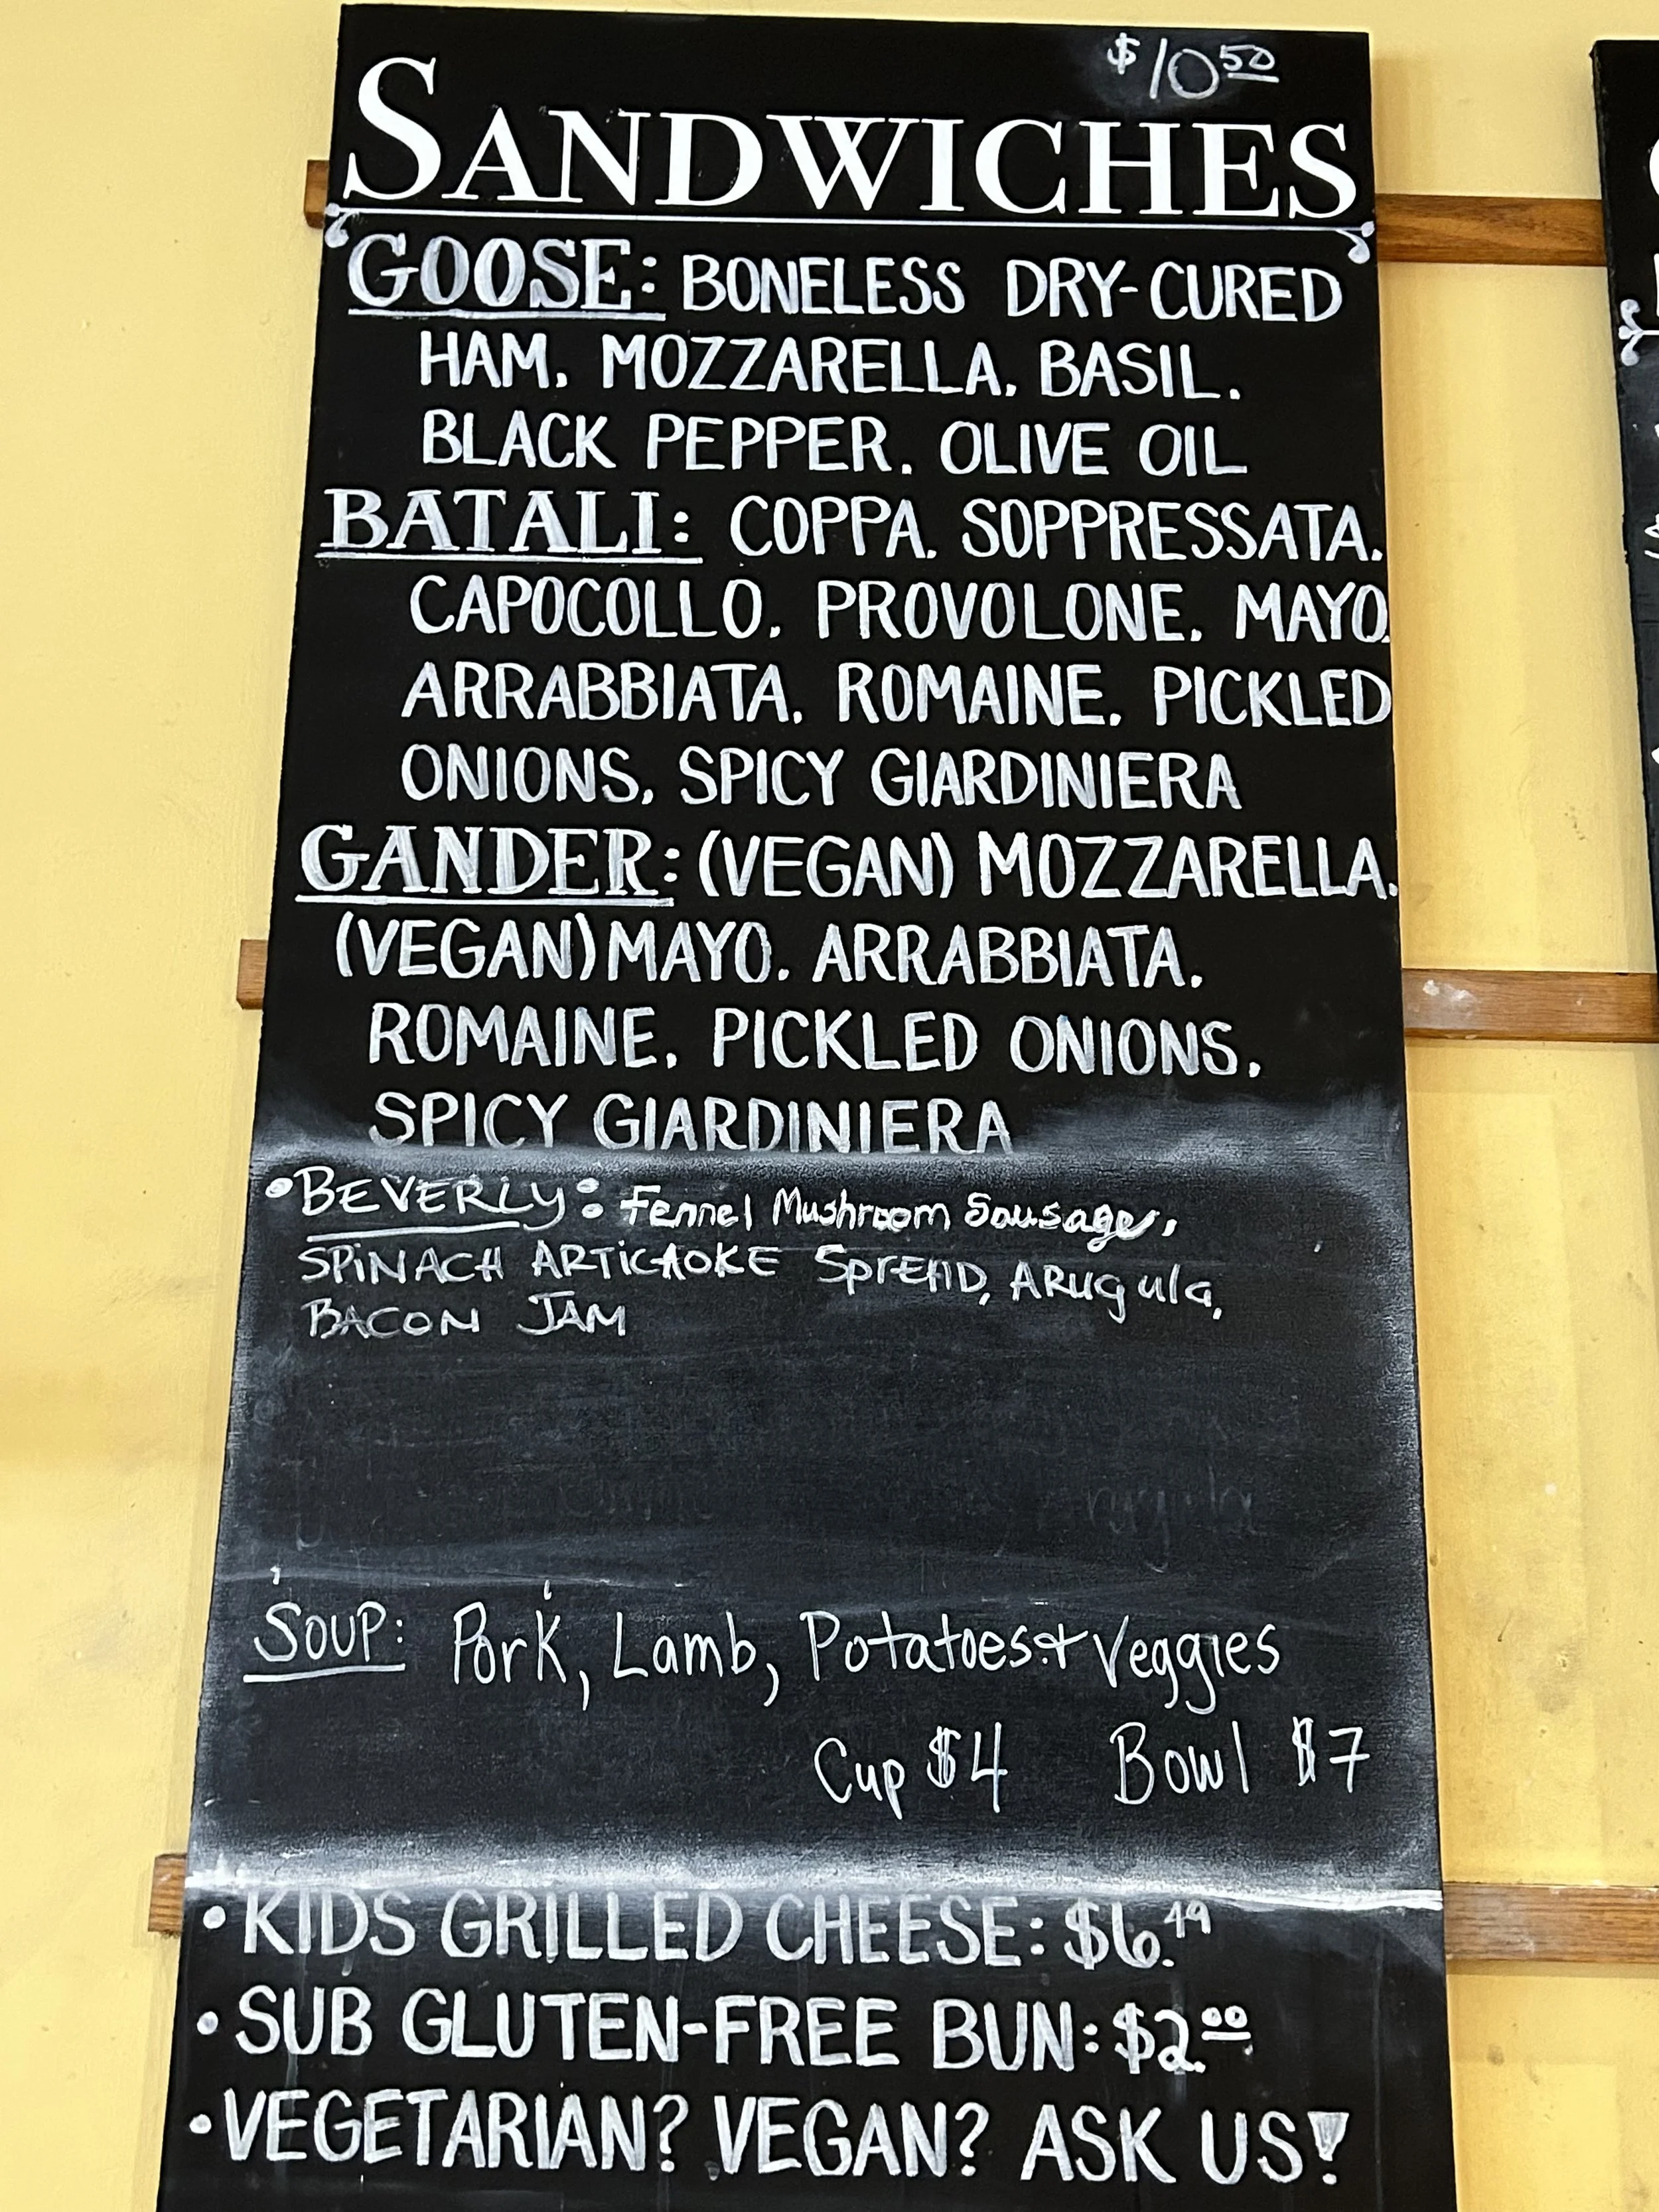 $10 50
SANDWICHES
GOOSE: BONELESS DRY-CURED
HAM, MOZZARELLA, BASIL,
BLACK PEPPER, OLIVE OIL
BATALI: COPPA, SOPPRESSATA,
CAPOCOLLO, PROVOLONE, MAYO,
ARRABBIATA, ROMAINE, PICKLED
ONIONS, SPICY GIARDINIERA
GANDER: (VEGAN) MOZZARELLA,
(VEGAN) MAYO, ARRABBIATA,
ROMAINE, PICKLED ONIONS,
SPICY GIARDINIERA
•BEVERLY: Fennel Mushroom Sausage,
SPiNACH ARTiCHOKE SprEAD, ARugula,
BACON JAM
SOUP: Pork, Lamb, Potatoes + Veggies
Cup $4 Bowl $7
•KIDS GRILLED CHEESE: $6.49
•SUB GLUTEN-FREE BUN: $2.00
•VEGETARIAN? VEGAN? ASK US!